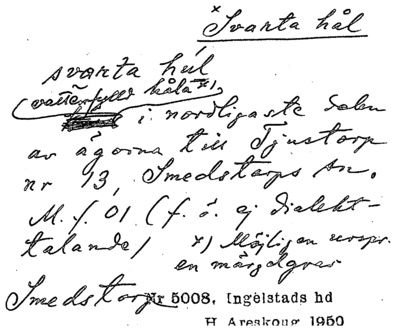 × Svarta hål
svarta hul
(vattenfylld håla *)
i nordligaste delen
av ägorna till Tjustorp
nr 13, Smedstorps sn.
M. f. 01 (f. ö. ej dialekt-
talande) *) Möjligen urspr.
en märgelgrav
Smedstorp Nr 5008, Ingelstads hd
H Areskoug 1950